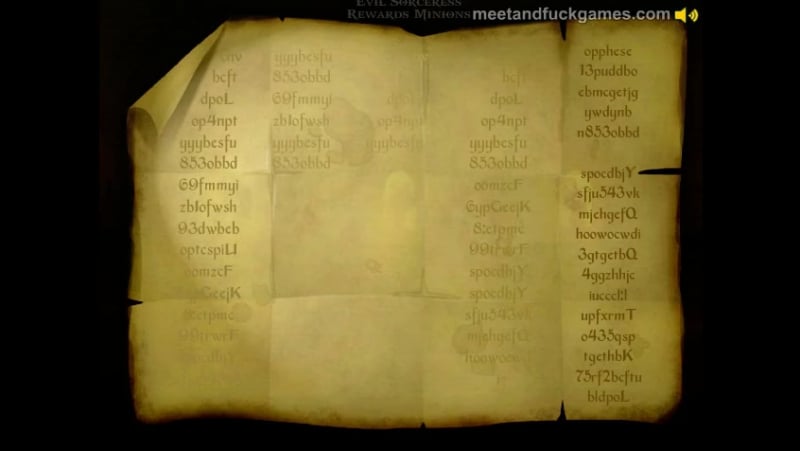 Evil Sorceress
Rewards Minions
meetandfuckgames.com
bcft
dpoL
op4npt
yyybesfu
853obbd
69fmmyi
zb1ofwsh
93dwbcb
oomzcF
99trwrF
yyybesfu
853obbd
69fmmyi
zb1ofwsh
yyybesfu
853obbd
op4npt
yyybesfu
bcft
dpoL
op4npt
yyybesfu
853obbd
oomzcF
6ypGeejK
8:etpmc
99trwrF
spocdbjY
spocdbjY
sfju543vk
mjehgefQ
hoowocwd
opphese
13puddbo
ebmcgetjg
ywdynb
n853obbd
spocdbjY
sfju543vk
mjehgefQ
hoowocwdi
3gtgetbQ
4ggzhhjc
upfxrmT
o435qsp
tgethbK
75rf2bcftu
bldpoL